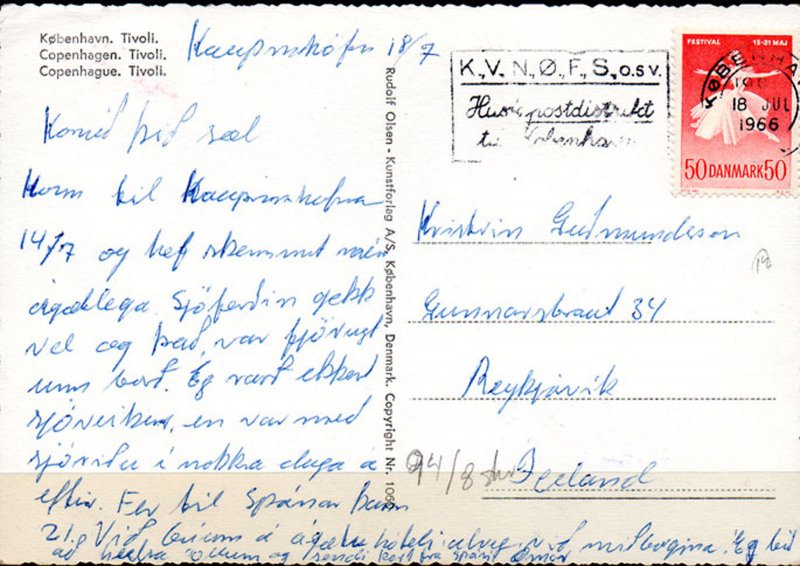 København. Tivoli.
Copenhagen. Tivoli.
Copenhague. Tivoli.
Kaupmhöfn 18/7
Komið þið sæl
Kom til Kaupmhafnar
14/7 og hef skemmt mér
ágætlega. Sjóferðin gekk
vel og það var fjörugt
um borð. Ég varð ekkert
sjóveikur, en var með
sjóriðu í nokkra daga á
eftir. Fer til Spánar þann
21. Við búum á ágætu hóteli alveg við miðborgina. Ég bið
að heilsa öllum og sendi kort frá Spáni
Rudolf Olsen - Kunstforlag A/S, København, Denmark. Copyright Nr.
K.,V.,N.,Ø.,F.,S.,O.S.V.
Husk postdistrikt
til København
FESTIVAL 15-31 MAJ
KØBENHA
18 JUL
1966
50 DANMARK 50
Kristvin Guðmundsson
Gunnarsbraut 34
Reykjavik
94/8
Iceland